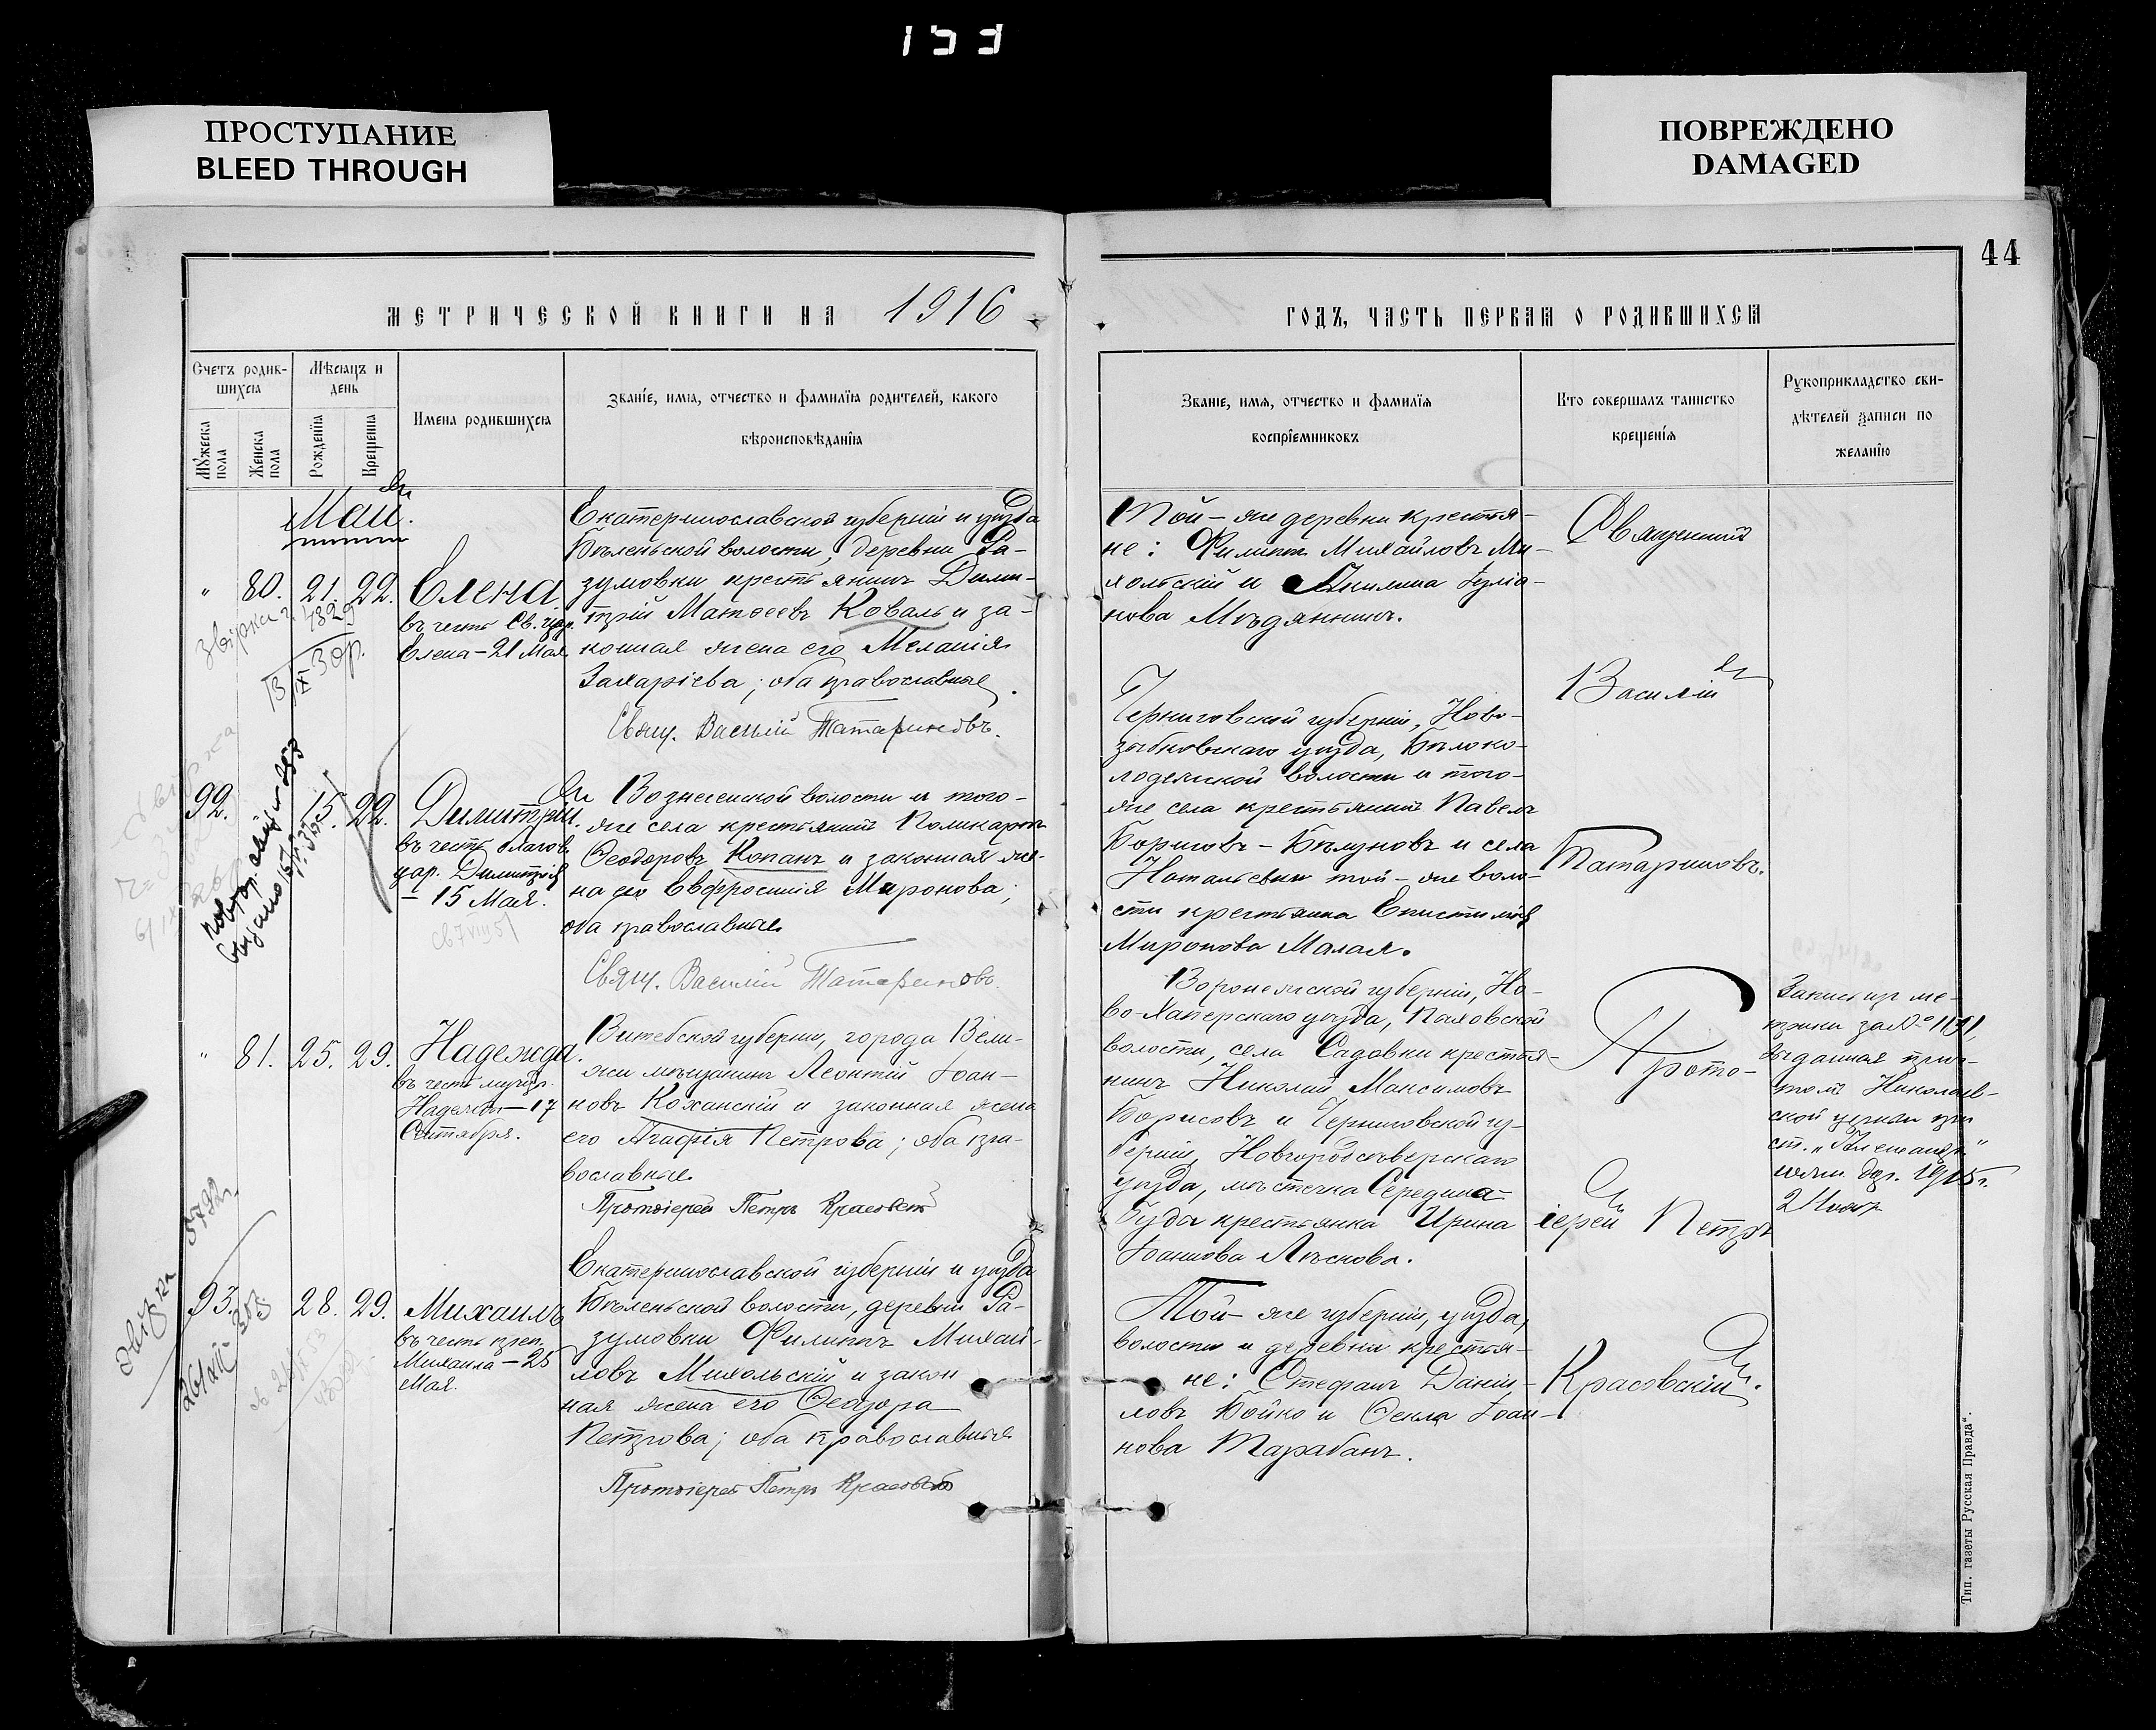 153
ПРОСТУПАНИЕ
BLEED THROUGH
ПОВРЕЖДЕНО
DAMAGED
44
МЕТРИЧЕСКОЙ КНИГИ НА 1916
ГОДЪ, ЧАСТЬ ПЕРВАЯ О РОДИВШИХСЯ
Счетъ родив-
шихся
Мѣсяцъ и
день
Мужеска
пола
Женска
пола
Рожденія
Крещенія
Имена родившихся
Званіе, имя, отчество и фамилія родителей, какого
вѣроисповѣданія
Званіе, имя, отчество и фамилія
воспріемниковъ
Кто совершалъ таинство
крещенія
Рукоприкладство сви-
дѣтелей записи по
желанію
Май.
" 80. 21. 22.
Елена
въ честь Св. цар.
Елена – 21 Мая.
Екатеринославской губерніи и уѣзда
Бѣленьской волости, деревни Ра-
зумовки крестьянинъ Дими-
трій Матѳеевъ Коваль и за-
конная жена его Меланія
Захаріева; оба православные.
Свящ. Василій Татариновъ.
Той-же деревни крестья-
не: Филиппъ Михайловъ Ми-
хольскій и Акилина Іуліа-
нова Мѣдянникъ.
Священникъ
Василій
Татариновъ.
92. 15. 22.
Димитрій.
въ честь благов.
цар. Димитрія
– 15 Мая.
Вознесенской волости и того-
же села крестьянинъ Поликарпъ
Ѳеодоровъ Копанъ и законная же-
на его Евфросинія Миронова;
оба православные
Свящ. Василій Татариновъ.
Черниговской губерніи, Ново-
зыбковскаго уѣзда, Бѣлоко-
лодезской волости и того-
же села крестьянинъ Павелъ
Борисовъ-Бѣлуновъ и села
Натальевки той-же воло-
сти крестьянка Епистимія
Миронова Малая.
" 81. 25. 29.
Надежда.
въ честь мучен.
Надежды – 17
Сентября.
Витебской губерніи, города Вели-
жи мѣщанинъ Леонтій Іоан-
новъ Коханскій и законная жена
его Агафія Петрова; оба пра-
вославные.
Протоіерей Петръ Красовскій
Воронежской губерніи, Но-
во-Хоперскаго уѣзда,
волости, села Садовки крестья-
нинъ Николай Максимовъ
Борисовъ и Черниговской гу-
берніи, Новгородсѣверскаго
уѣзда, мѣстечка Середина-
Буда крестьянка Ирина
Іоаннова Лѣскова.
Прото-
іерей Петръ
Красовскій.
Запись изъ ме-
трики за №
выданная прич-
томъ Николаев-
ской церкви при
ст.
дор. 1915 г.
2 Ноябр.
93. 28. 29.
Михаилъ
въ честь преп.
Михаила – 23
Мая.
Екатеринославской губерніи и уѣзда
Бѣленьской волости, деревни Ра-
зумовки Филиппъ Михай-
ловъ Михольскій и закон
ная жена его Ѳеодора
Петрова; оба православные
Протоіерей Петръ Красовскій
Той-же губерніи, уѣзда,
волости и деревни крестья-
не: Стефанъ Даніи-
ловъ Бойко и Ѳекла Іоан-
нова Тарабанъ.
Тип. газеты Русская Правда“.